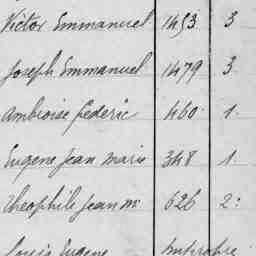 Victor Emmanuel 1453 3
Joseph Emmanuel 1479 3
Ambroise federic 460 1
Eugene Jean Marie 348 1
Theophile Jean M: 626 2:
Louis Eugene Impropre